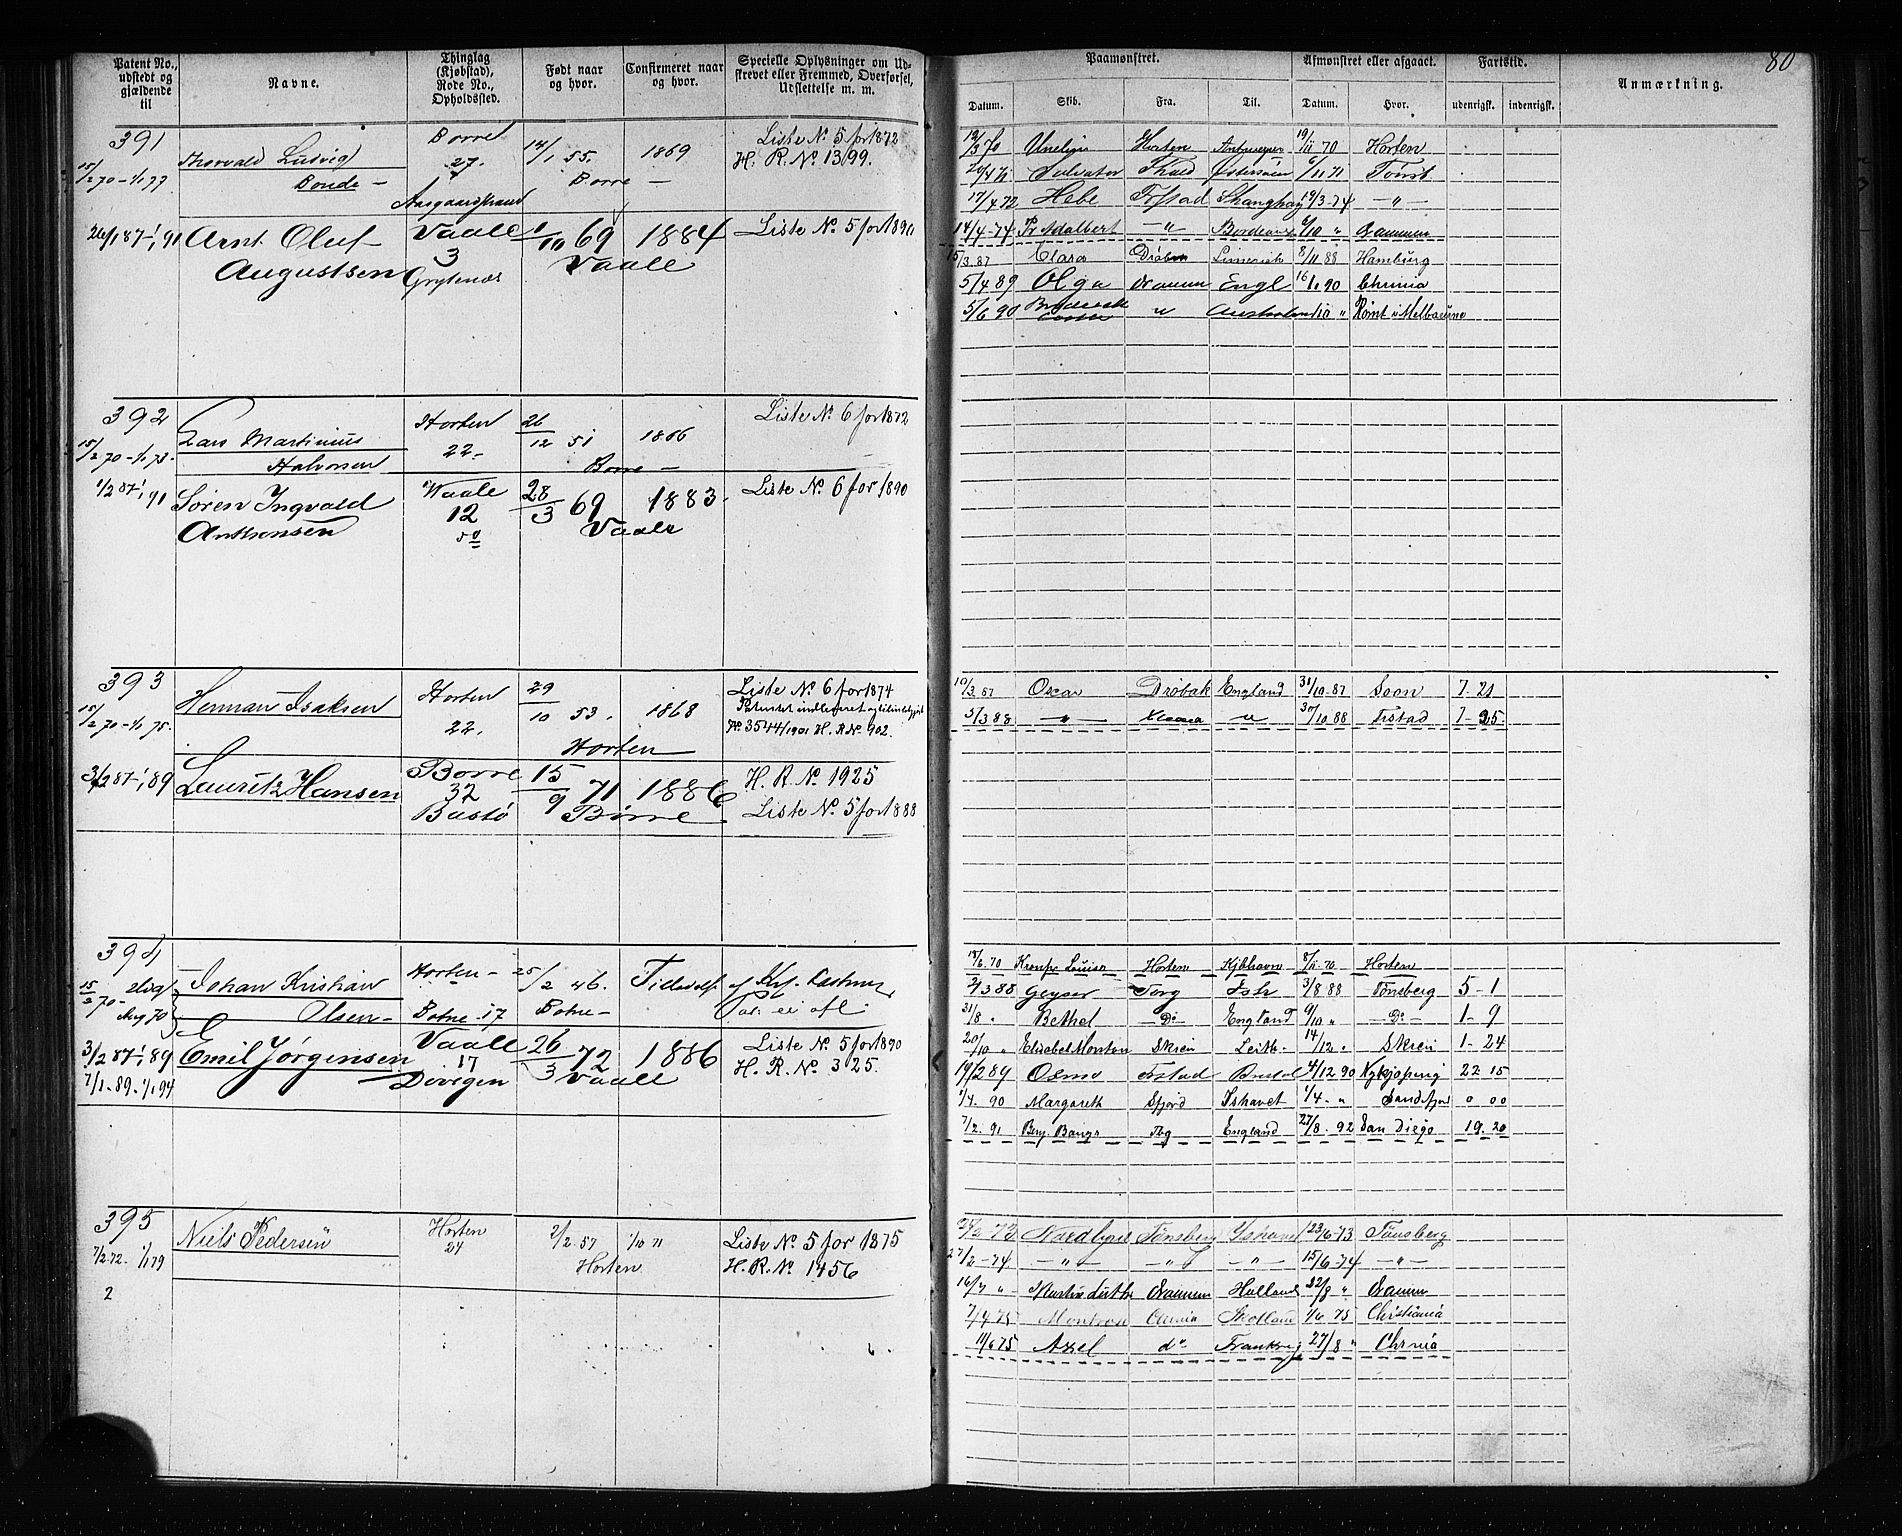 80
Patent No., udstedt og gjældende til
Navne.
Thinglag (Kjøbstad), Rode No., Opholdssted.
Født naar og hvor.
Confirmeret naar og hvor.
Specielle Oplysninger om Udskrevet eller Fremmed, Overførsel, Udslettelse m. m.
Paamønstret.
Afmønstret eller afgaaet.
Fartstid.
Anmærkning.
Datum. Skib. Fra. Til. Datum. Hvor. udenrigsk. indenrigsk.
391 Borre 14/1 55. 1869 Liste No. 5 for 1872
Thorvald Ludvig 27. H. R. No. 1399.
15/2 70 - 1/1 77 Bonde - Borre -
Aasgaardstrand
26/1 87 - 1/1 91 Arnt Oluf Vaale 1/10 69 1884 Liste No. 5 for 1890
Augustsen 3 Vaale
Grytenæs
12/3 70 Horten Antwerpen 19/11 70 Horten
Salvator 6/11 71 Tønsb
17/4 72 Hebe Fr.stad Shanghay 19/3-74 -"-
14/4-74 Pr Adalbert -"- Bordeaux 6/10 " Drammen
15/3.87 Clara Drøbak Limerick 8/11 88 Hamburg
5/4 89 Olga Drammen Engl 16/1 90 Chrania
5/6 90 " Australien " Rømt i Melbourne
392 Horten 26/12 51 1866 Liste No. 6 for 1872
Lars Martinius 22.-
15/2 70 - 1/1 73. Halvorsen Borre -
1/2 87 - 1/1 91 Søren Ingvald Vaale 28/3 69 1883. Liste No. 6 for 1890
Anthonsen 12 Vaale
do
393 Herman Isaksen Horten 29/10 53. 1868 Liste No. 6 for 1874
15/2 70 - 1/1 75. 22. Patentet indleveret
No. 3544/1901 H. R. No. 902.
Horten
3/2 87 - 1/1 89 Lauritz Hansen Borre 15/9 71 1886 H. R. No. 1925
32 Borre
Bastø Liste No. 5 for 1888
10/3.87 Oscar Drøbak England 31/10-87 Soon 7-21
5/3 88 -"- " 30/10 88 Frstad 7-25
394 Johan Kristian Horten - 25/2 46.
15/2 70 - Olsen - Botne-17 Botne -
3/2 87 - 1/1 89 Emil Jørgensen Vaale 26/3 72 1886 Liste No. 5 for 1890
7/1-89.-1/1 94 17 Vaale H. R. No. 325.
Døvigen
18/6.70 Kronpr Louisa Horten Kjbhavn 8/11.70 Horten
2/3 88 Geyser Isl 3/8 88 Tønsberg 5-1
31/8 " Bethel Do England 9/10 " Do 1-9
20/10 " Elisabet Monton Skien Leith. 14/12 " Skien 1-24
19/2 89 Osmo Frstad Bristol 4/12 90 Nykjøping 22 15
1/4.90 Margareth Sfjord Ishavet 1/4." Sandefjord 0 00
7/2.91 Benj. Bangs Tbg England 27/8.92 San Diego 19.20
395 Niels Pedersen Horten 2/2.57 1/10 71 Liste No. 5 for 1875
7/2.72. 1/1 79 24 Horten H. R. No. 1456
2
25/2-73 Nordlyset Tønsberg Ishavet 23/6-73 Tønsberg
27/2-74 -"- -"- -"- 15/6-74 -"-
16/7 " Drammen Holland 22/8 " Drammen
7/4 75 Montrose Chrania Skotland 1/6 75 Christiania
11/6 75 Axel do Frankrig 27/8 " Chrnia